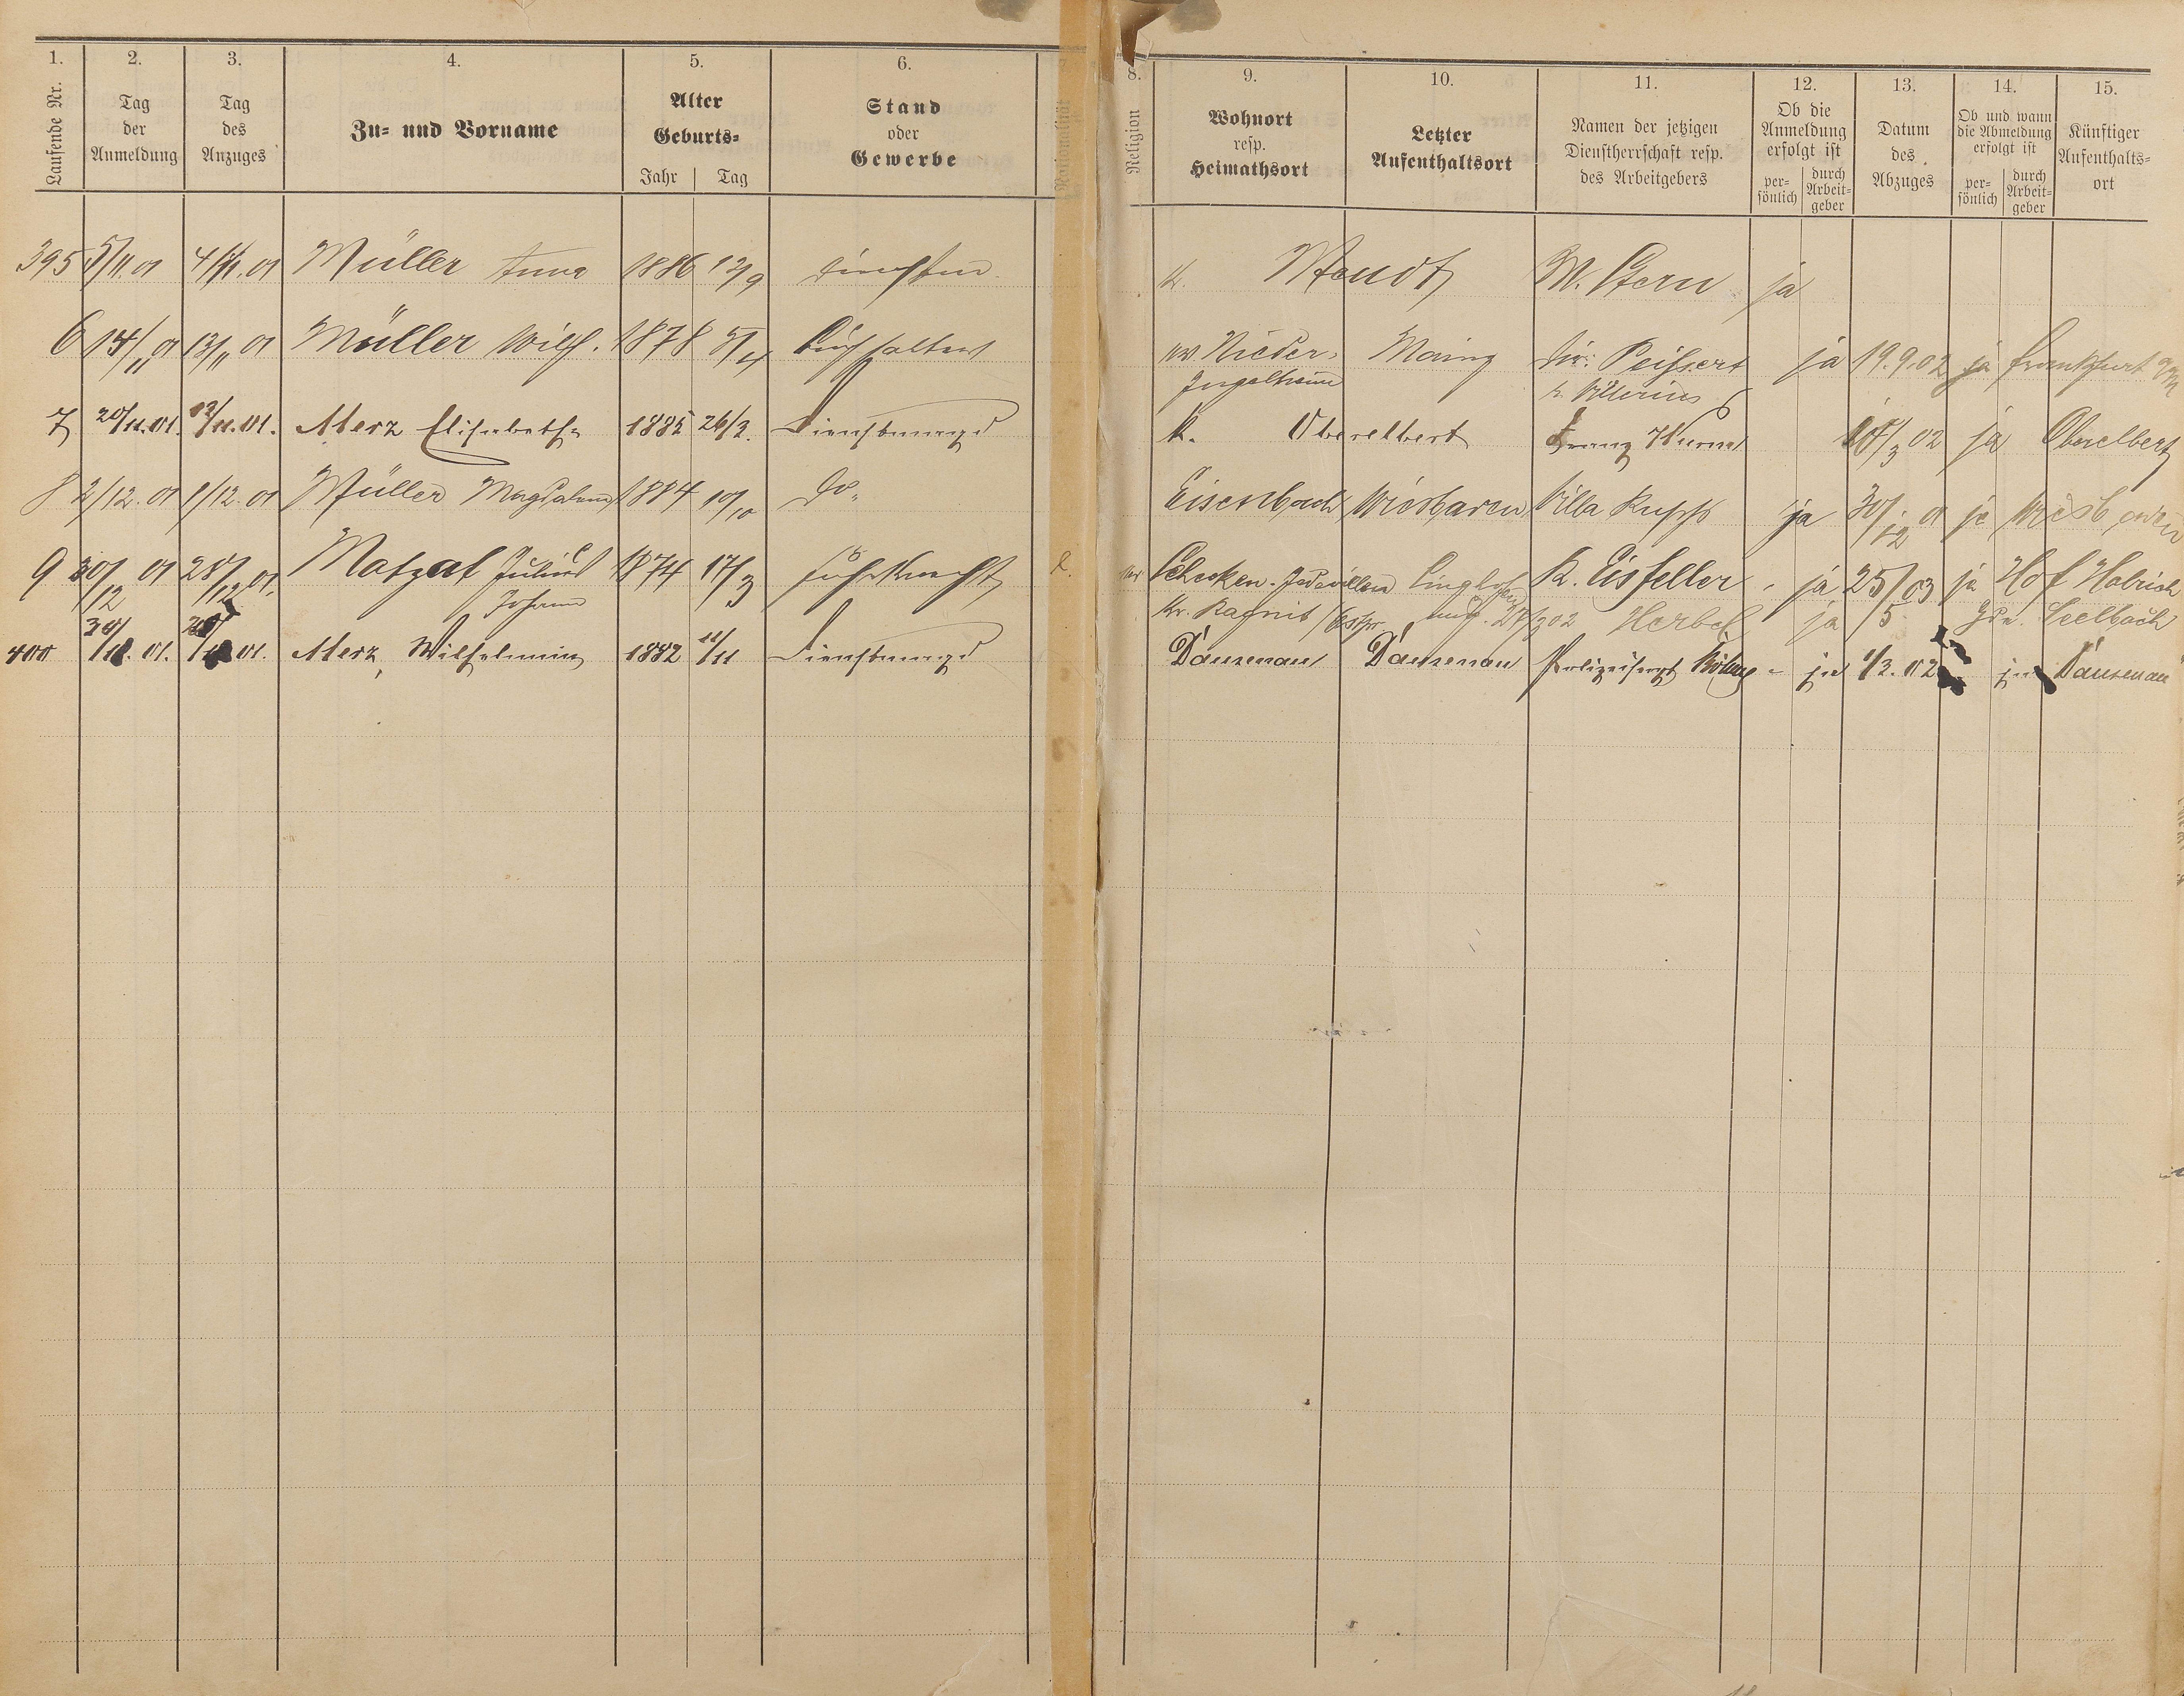 1. 2. 3. 4. 5. 6. 8. 9. 10. 11. 12. 13. 14. 15.
Laufende Nr. Tag der Anmeldung Tag des Anzuges Zu- und Vorname Alter Geburts- Jahr Tag Stand oder Gewerbe Nationalität Religion Wohnort resp. Heimathsort Letzter Aufenthaltsort Namen der jetzigen Dienstherrschaft resp. des Arbeitgebers Ob die Anmeldung erfolgt ist persönlich durch Arbeitgeber Datum des Abzuges Ob und wann die Abmeldung erfolgt ist persönlich durch Arbeitgeber Künftiger Aufenthaltsort
395 5/11.01 4/11.01 Müller Anna 1886 12/9 k. W. Stern ja
6 14/11 01 13/11 01 Müller Wilh. 1878 5/4 Buchhalter ev. Nieder- Mainz ja 19.9.02 ja Frankfurt a/M
Ingelheim
7 20/11.01. 13/11.01. Merz Elisabeth 1885 26/3. Dienstmagd k. Oberelbert Franz 02 ja Oberelbert
8 2/12.01 1/12.01 Müller Magdalena 1884 10/10 do. Eisenbach Wiesbaden Villa Rupp ja 30/12 01 ja Wiesbaden
9 30/12 01 28/12 01. Matzat Julius 1874 17/3 Fuhrknecht K. Eisfeller ja 25/5 03 ja Hof
Johann Kr. Ragnit 02 Herbel ja Seelbach
400 01. 01. Merz, Wilhelmine 1882 11/11 Dienstmagd Dausenau Dausenau ja 1/3.02 ja Dausenau